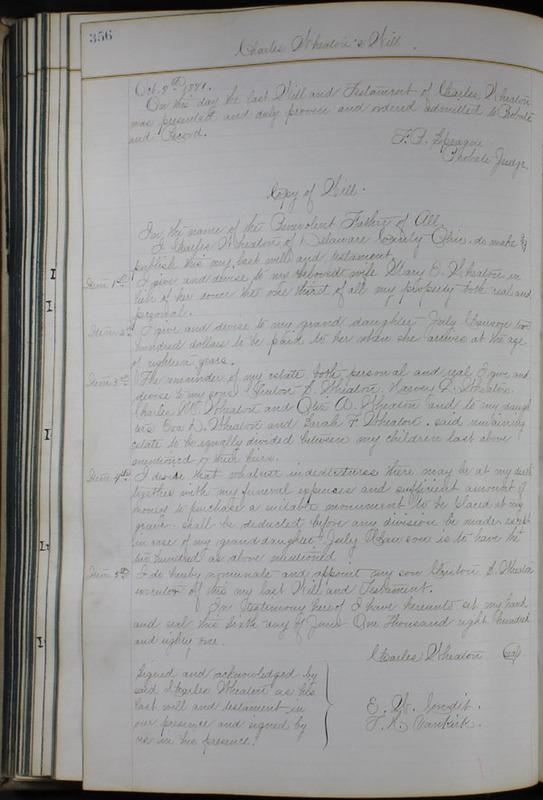 356
Charles Wheaton's Will.
Oct. 8th 1881.
On this day the last Will and Testament of Charles Wheaton
was presented and duly proven and ordered admitted to Probate
and Record.
F. F. Sprague
Probate Judge
Copy of Will.
In the name of the Benevolent Father of All.
I Charles Wheaton of Delaware County Ohio. do make &
publish this my last will and testament.
Item 1st I give and devise to my beloved wife Mary E. Wheaton in
lieu of her dower the one third of all my property both real and
personal.
Item 2nd I give and devise to my grand daughter July two
hundred dollars to be paid to her when she arrives at the age
of eighteen years.
Item 3rd The remainder of my estate both personal and real I give and
devise to my sons S. Wheaton, Harvey Wheaton,
Charles Wheaton and Otis A. Wheaton and to my daugh
ters D. Wheaton and Sarah F. Wheaton. said remaining
estate to be equally divided between my children last above
mentioned or their heirs.
Item 4th I desire that whatever indebtedness there may be at my death
together with my funeral expenses and sufficient amount of
money to purchase a suitable monument to be placed at my
grave. shall be deducted before any division be made. except
in case of my grand daughter July is to have the
two hundred as above mentioned
Item 5th I do hereby nominate and appoint my son S. Wheaton
executor of this my last Will and Testament.
In Testimony hereof I have hereunto set my hand
and seal this sixth day of June One thousand eight hundred
and eighty one.
Charles Wheaton seal
Signed and acknowledged by
said Charles Wheaton as his
last will and testament in
our presence and signed by
us in his presence.
E.